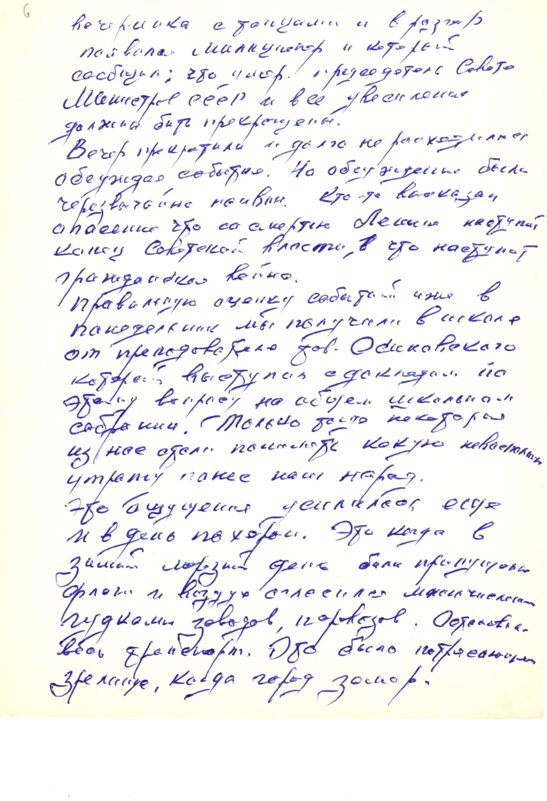 6
вечеринка с танцами и в разгар
появился милиционер и который
сообщил, что умер председатель Совета
Министров СССР и все увеселения
должны быть прекращены.
Вечер прекратили и долго не расходились
обсуждая события. Но обсуждения были
черезвычайно наивны. Кто-то высказал
опасение что со смертью Ленина наступит
конец Советской власти, что наступит
гражданская война.
Правильную оценку событий уже в
понедельник мы получили в школе
от преподователя тов. Осиновского
который выступал с докладом по
этому вопросу на общем школьном
собрании. Только тогда некоторые
из нас стали понимать какую невосполнимую
утрату понес наш народ.
Это ощущение усилилось еще
и в день похорон. Это когда в
зимний морозный день были приспущены
флаги и воздух огласился многочисленными
гудками заводов, паровозов. Остановился
весь транспорт. Это было потрясающее
зрелище, когда город замер.